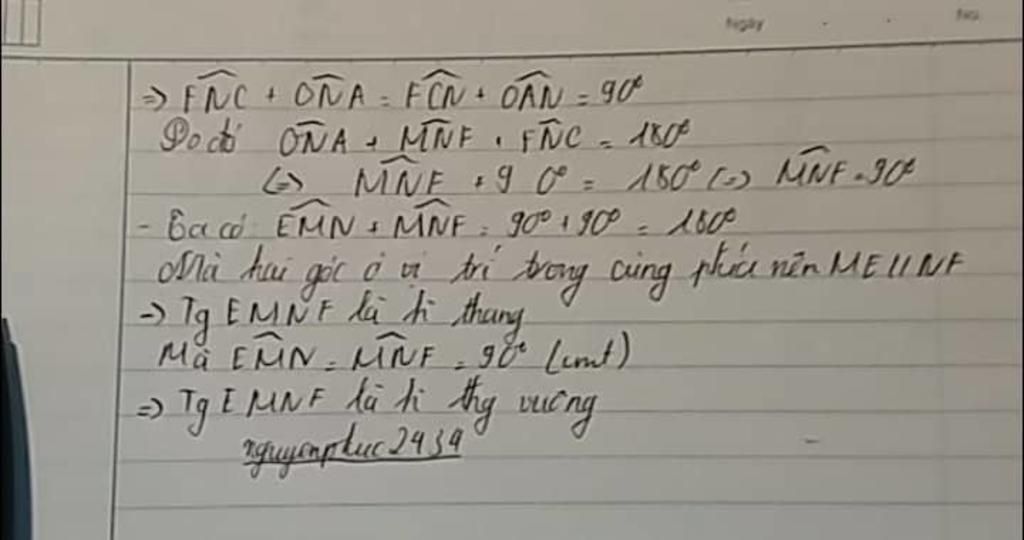 Ngày
No.
=> FNC + ONA = FCN + OAN = 90°
Do đó ONA + MNF + FNC = 180°
<=> MNF + 90° = 180° <=> MNF = 90°
- Ta có: EMN + MNF = 90° + 90° = 180°
Mà hai góc ở vị trí trong cùng phía nên ME // NF
-> Tg EMNF là hi thang
Mà EMN = MNF = 90° (cmt)
=> Tg EMNF là hi thg vuông
nguyenphuc2434